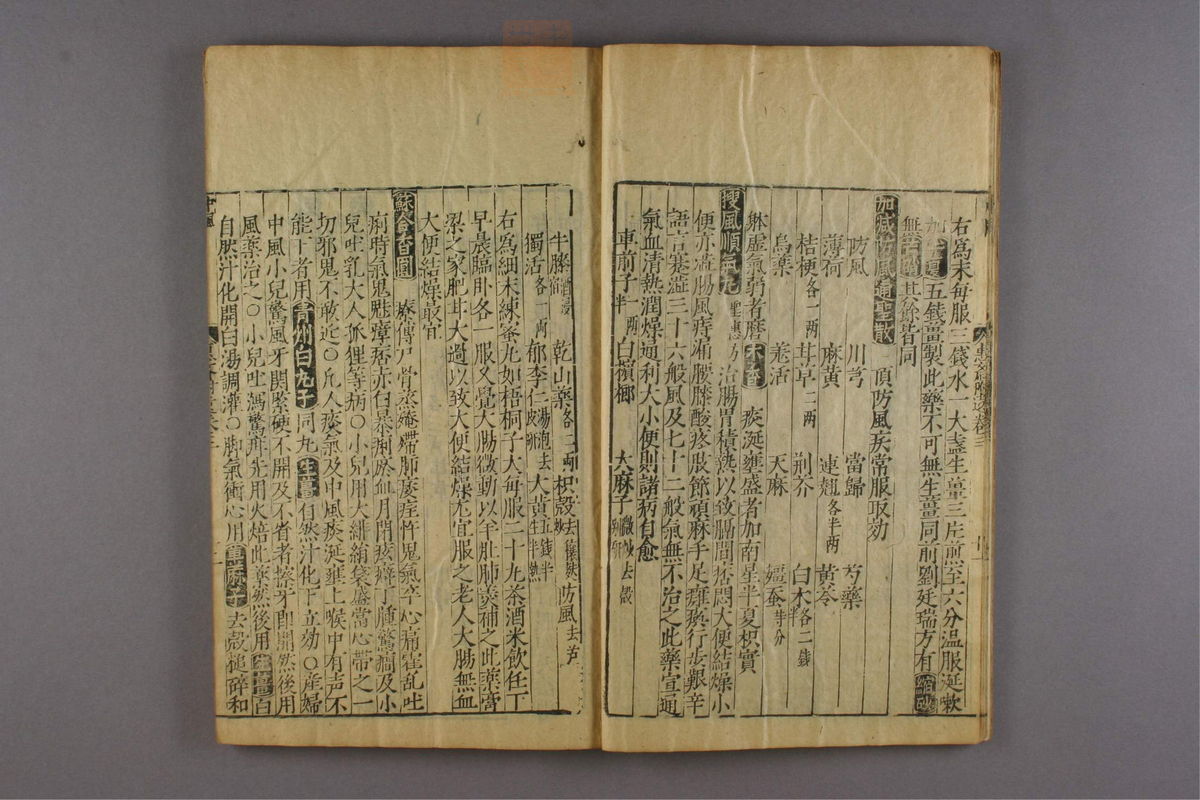 右為末每服三錢水一大盞生薑三片煎至六分溫服涎嗽
加半夏五錢薑製此藥不可無生薑同前劉廷瑞方有縮砂
無其餘皆同
加減防風通聖散 頂防風疾常服取効
防風 川芎 當歸 芍藥
薄荷 麻黃 連翹各半兩 黃芩
桔梗各一兩 甘草二兩 荆芥 白木各二錢
烏藥 羌活 天麻 殭蚕半分
躰虛氣弱者磨木香 痰涎壅盛者加南星半夏枳實
搜風順氣丸 理惠方 治腸胃積熱以致膈間痞悶大便結燥小
便赤澁腸風痔漏腰膝酸疼肢節頑麻手足癱瘓行步艱辛
語言蹇澁三十六般風及七十二般氣無不治之此藥宣通
氣血清熱潤燥通利大小便則諸病自愈
車前子二兩半 白檳榔 大麻子微炒去殼
牛膝酒浸 乾山藥各二兩 枳殼去穰炒 防風去芦
獨活各一兩 郁李仁湯泡去皮研 大黃五錢半生半熟
右為細末煉蜜丸如梧桐子大每服二十丸茶酒米飲任下
早晨臨卧各一服久覺大腸微動以羊肚肺羹補之此藥膏
粱之家肥甘大過以致大便結燥尤宜服之老人大腸無血
大便結燥最宜
蘇合香圓 療傳尸骨蒸殗殜肺痿疰忤鬼氣卒心痛霍亂吐
痢時氣鬼魅瘴瘧赤白暴痢瘀血月閉痃癖丁腫驚癇及小
兒吐乳大人狐狸等病○小兒用大緋絹袋盛當心帶之一
切邪鬼不敢近○凡人痰氣及中風痰涎壅上喉中有声不
能下者用青州白丸子同丸生薑自然汁化下立効○産婦
中風小兒驚風牙關緊硬不開及不省者擦牙即開然後用
風藥治之○小兒吐瀉驚疳先用火焙此藥然後用生薑自
自然汁化開白湯調灌○脚氣衝心用蓖麻子去殼搥碎和